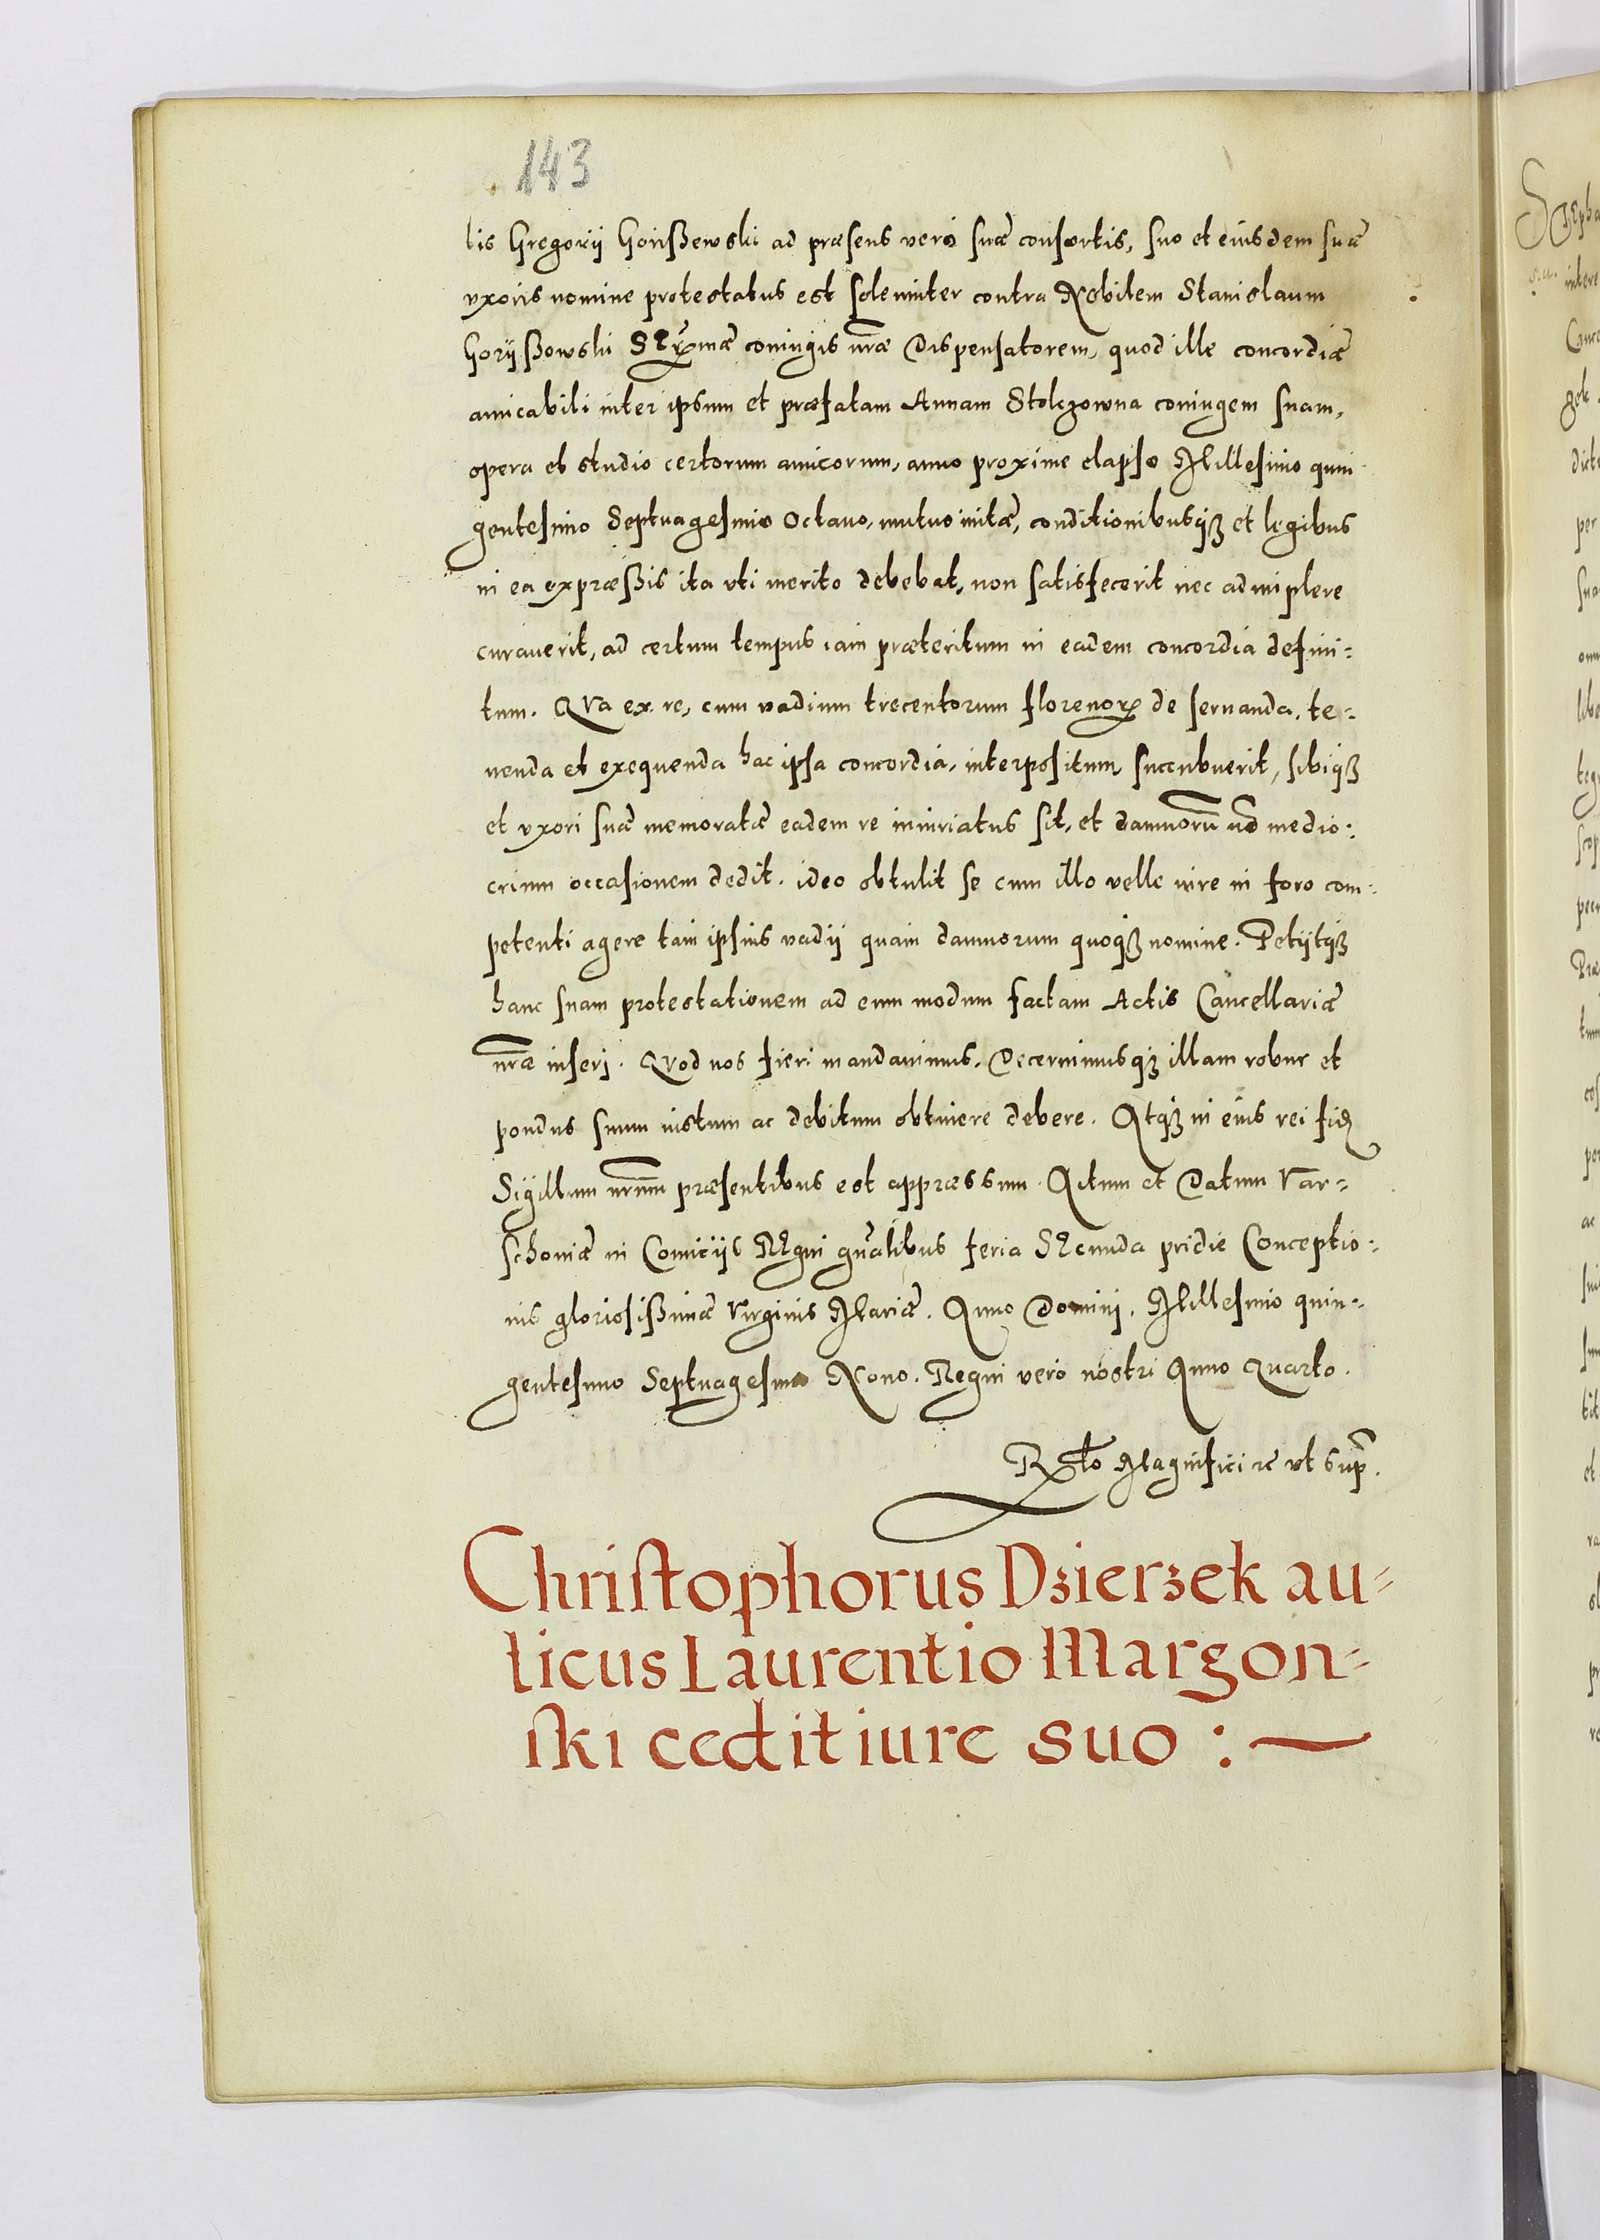 143
lis Gregorij Gorißewski ad præsens vero suæ consortis, suo et eiusdem suæ
vxoris nomine protestatus est solemniter contra Nobilem Stanislaum
Gorijßowski SErmæ coniugis nræ Dispensatorem, quod ille concordiæ
amicabili inter ipsum et præfatam Annam Stolczowna coniugem suam,
opera et studio certorum amicorum, anno proxime elapso Millesimo quin
gentesimo Septuagesimo Octauo, mutuo initæ, conditionibusqȝ et legibus
in ea expræßis ita vti merito debebat, non satisfecerit nec adimplere
curauerit, ad certum tempus iam præteritum in eadem concordia defini=
tum. QVa ex re, cum vadium trecentorum florenoꝝ de seruanda, te=
nenda et exequenda hac ipsa concordia, interpositum succubuerit, sibiqȝ
et vxori suæ memoratæ eadem re iniuriatus sit, et damnorũ nõ medio:
crium occasionem dedit. ideo obtulit se cum illo velle iure in foro com=
petenti agere tam ipsius vadij quam damnorum quoqȝ nomine. Petijtqȝ
hanc suam protestationem ad eum modum factam Actis Cancellariæ
nræ inseri. QVod nos fieri mandauimus. Decernimusqȝ illam robur et
pondus suum iustum ac debitum obtinere debere. Atqȝ in eius rei fidẽ
Sigillum nrum præsentibus est appræssum. Actum et Datum Var=
schouiæ in Comicijs REgni gnalibus feria SEcunda pridie Conceptio=
nis gloriosißimæ Virginis Mariæ. Anno Domini. Millesimo quin=
gentesimo Septuagesimo Nono. Regni vero nostri Anno Quarto.
Rlto Magnifici ꝛc vt supꝰ.
Christophorus Dzierzek au=
licus Laurentio Margon=
ski cedit iure suo : ~